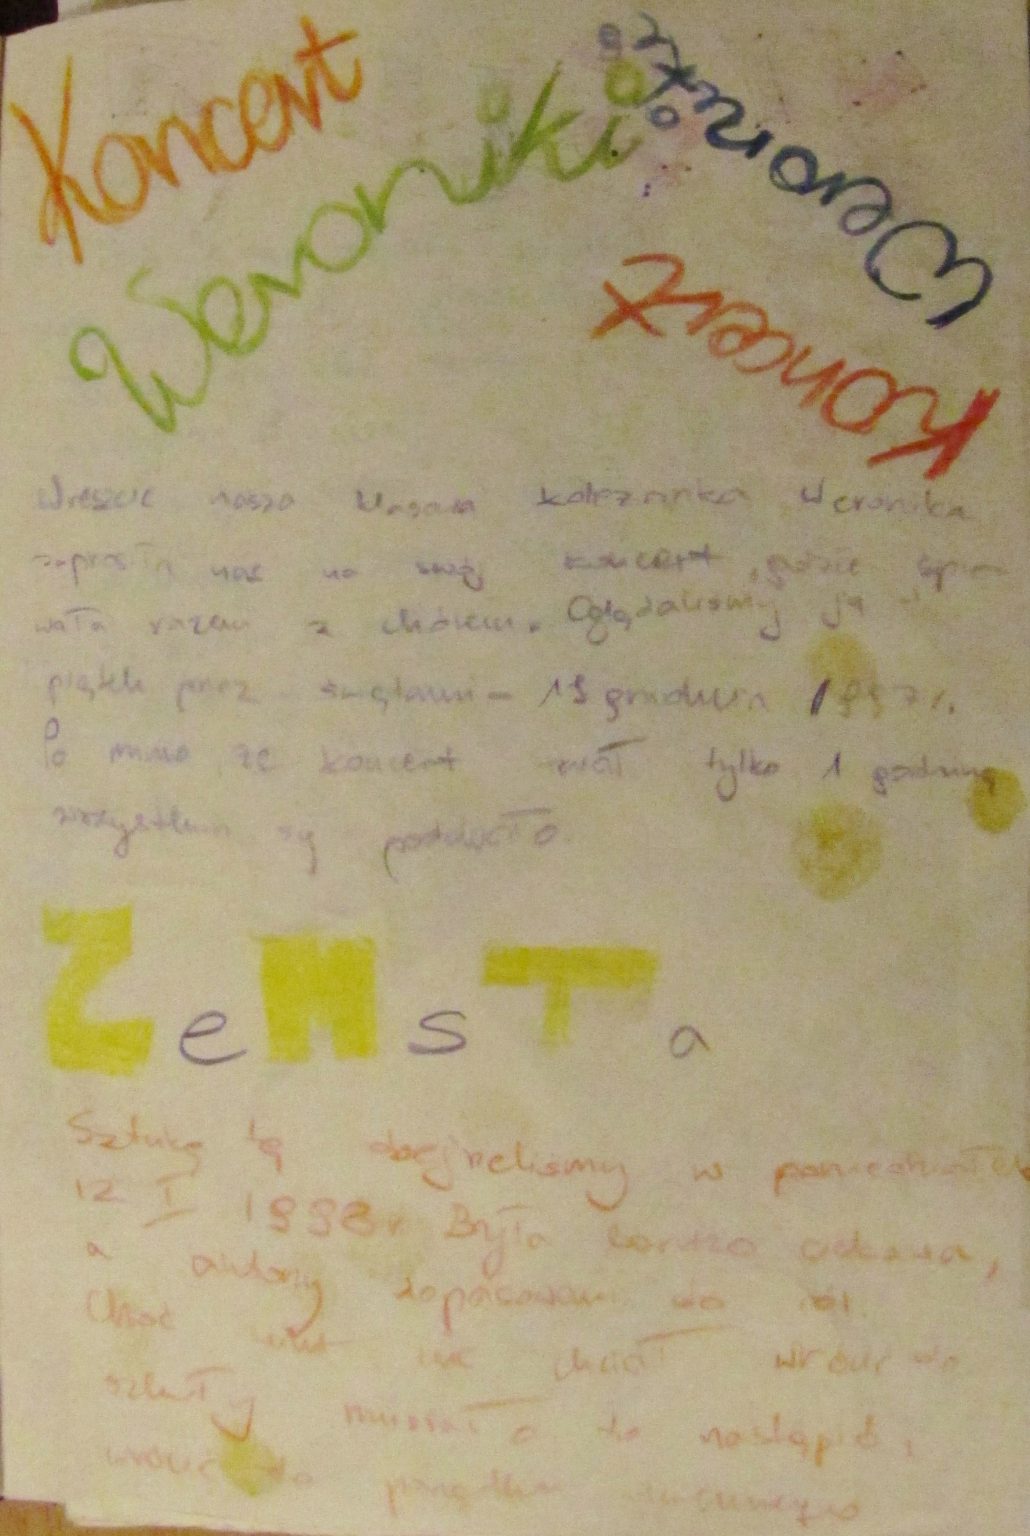 Koncert
Weroniki
Weroniki
Koncert
nasza koleżanka Weronika
zaprosiła nas na swój koncert, gdzie śpie-
wała razem z chórem. Oglądaliśmy ją w
piątek przez świętami - 19 grudnia 1997 r.
Po mimo że koncert trwał tylko 1 godzinę
wszystkim się podobało.
ZeMsTa
Sztukę tą obejrzeliśmy w poniedziałek
12 I 1998 r. Była bardzo ciekawa,
a aktorzy dopasowani do ról.
Choć nikt nie chciał wrócić do
szkoły musiało to nastąpić,
wrócić do